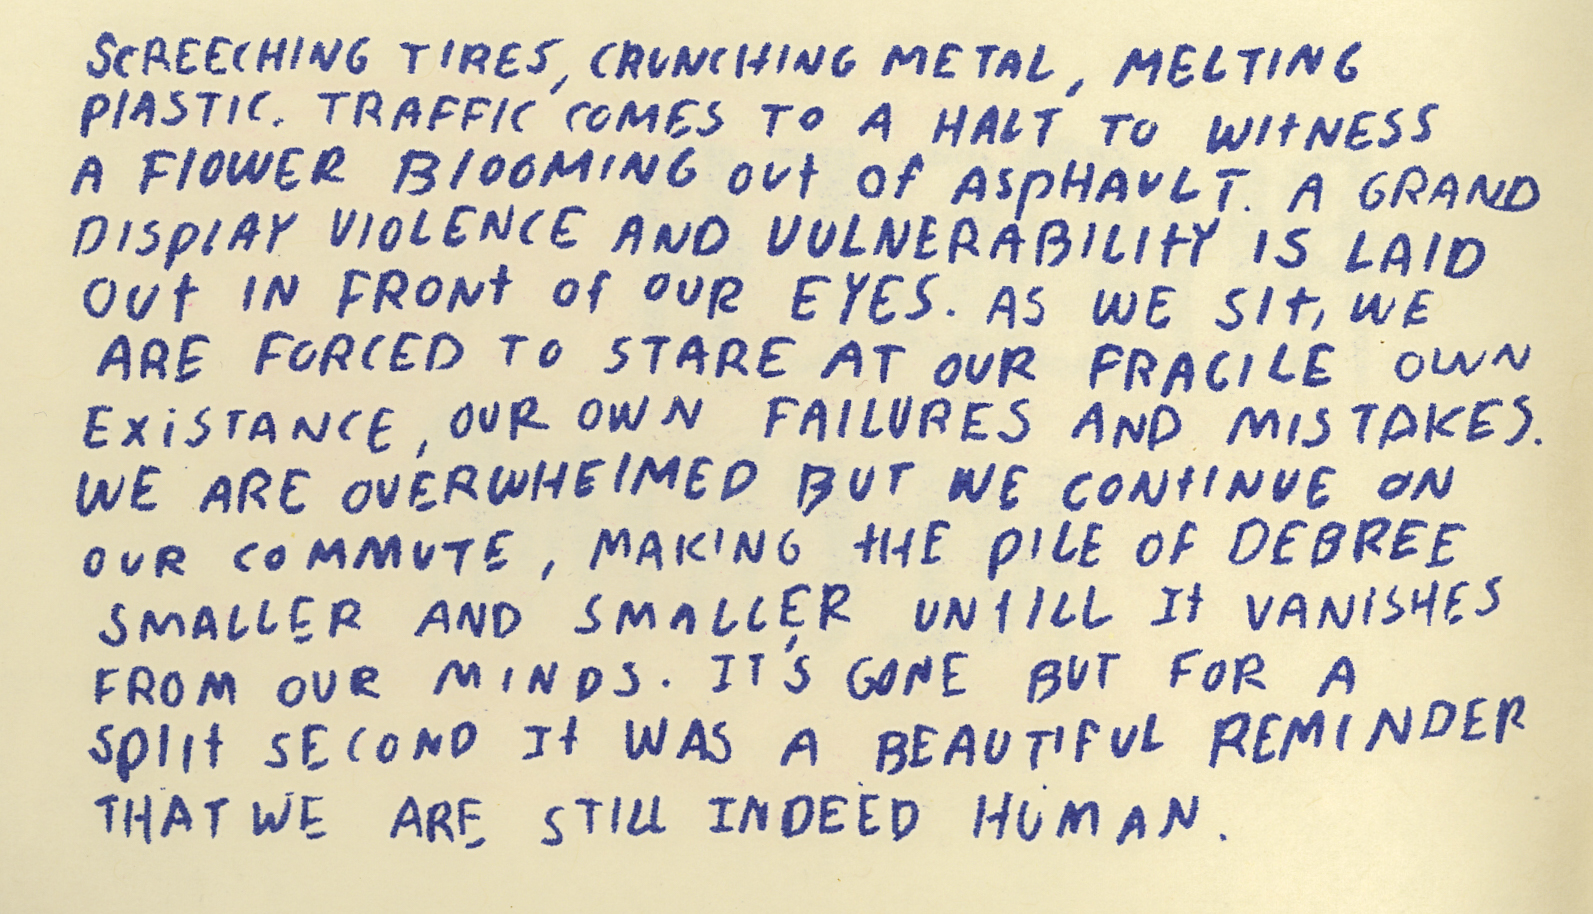 SCREECHING TIRES, CRUNCHING METAL, MELTING
PlASTIC. TRAFFIC COMES TO A HALT TO WItNESS
A FlOWER BlOOMING OUt Of ASpHAULT. A GRAND
DISplAY VIOLENCE AND VULNERABILItY IS LAID
OUt IN FRONt Of OUR EYES. AS WE SIt, WE
ARE FORCED TO STARE AT OUR FRAGILE OWN
EXiSTANCE, OUR OWN FAILURES AND MISTAKES.
WE ARE OVERWHElMED BUT WE CONtINUE ON
OUR COMMUTE, MAKING tHE PILE OF DEBREE
SMALLER AND SMALLER UNtILL It VANISHES
FROM OUR MINDS. IT'S GONE BUT FOR A
SplIt SECOND It WAS A BEAUTIFUL REMINDER
THAT WE ARE STILL INDEED HUMAN.